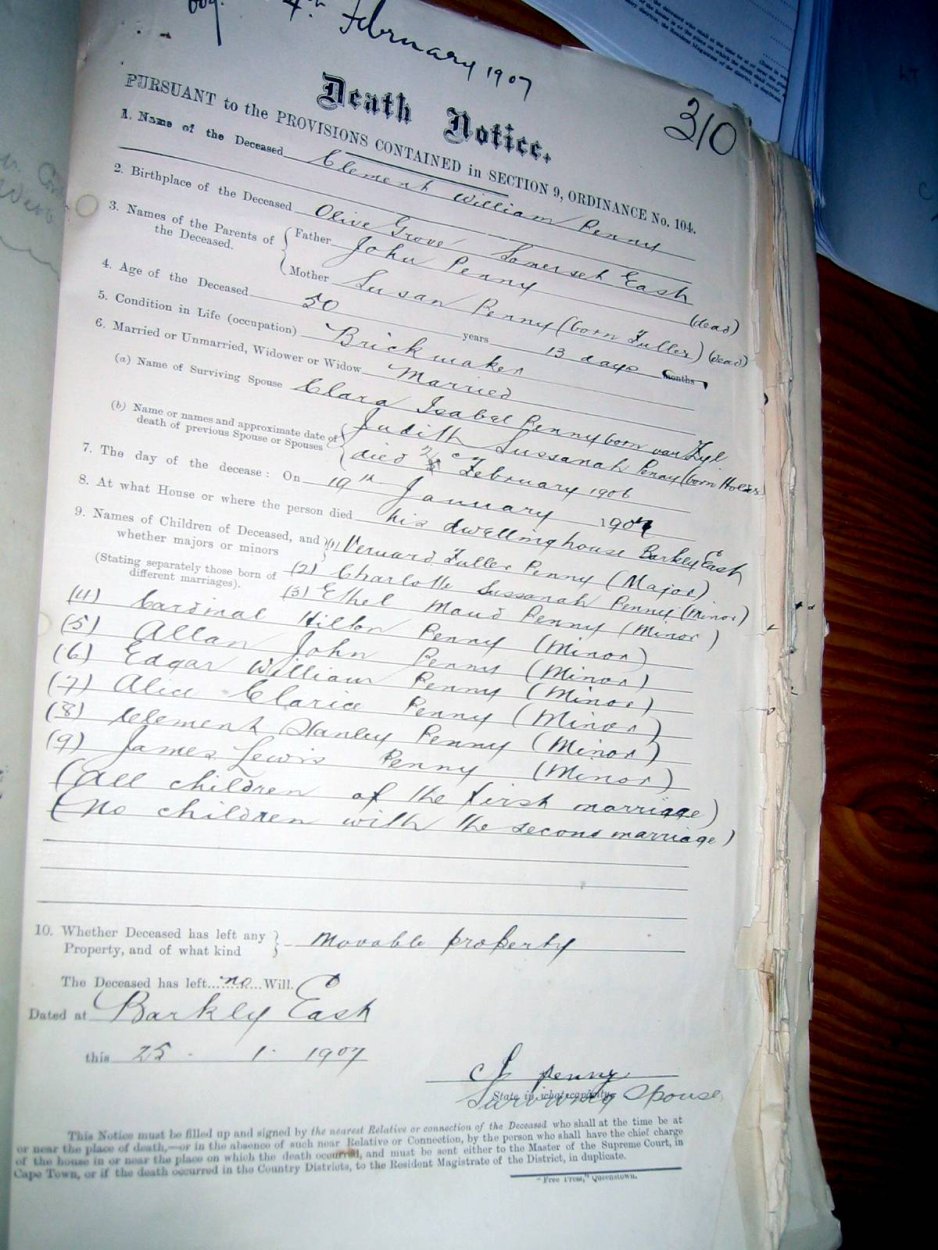 4th February 1907
310
Death Notice.
PURSUANT to the PROVISIONS CONTAINED in SECTION 9, ORDINANCE No. 104.
1. Name of the Deceased Clement William Penny
2. Birthplace of the Deceased Olive Grove, Somerset East
3. Names of the Parents of the Deceased. { Father John Penny (dead)
Mother Susan Penny (born Fuller) (dead)
4. Age of the Deceased 50 years 13 days months
5. Condition in Life (occupation) Brickmaker
6. Married or Unmarried, Widower or Widow Married
(a) Name of Surviving Spouse Clara Isabel Penny born van Zyl
(b) Name or names and approximate date of death of previous Spouse or Spouses { Judith Sussanah Penny (born
died February 1906
7. The day of the decease: On 19th January 1907
8. At what House or where the person died his dwelling house Barkly East
9. Names of Children of Deceased, and whether majors or minors } (1) Vernard Fuller Penny (Major)
(Stating separately those born of different marriages). (2) Charlotte Sussanah Penny (Minor)
(3) Ethel Maud Penny (Minor)
(4) Cardinal Hilton Penny (Minor)
(5) Allan John Penny (Minor)
(6) Edgar William Penny (Minor)
(7) Alice Clarice Penny (Minor)
(8) Clement Stanley Penny (Minor)
(9) James Lewis Penny (Minor)
(All children of the first marriage)
(No children with the second marriage)
10. Whether Deceased has left any Property, and of what kind } Movable property
The Deceased has left no Will.
Dated at Barkly East
this 25 . 1 . 1907
C I Penny
State in what capacity
Surviving Spouse
This Notice must be filled up and signed by the nearest Relative or connection of the Deceased who shall at the time be at
or near the place of death,—or in the absence of such near Relative or Connection, by the person who shall have the chief charge
of the house in or near the place on which the death occurred, and must be sent either to the Master of the Supreme Court, in
Cape Town, or if the death occurred in the Country Districts, to the Resident Magistrate of the District, in duplicate.
"Free Press," Queenstown.